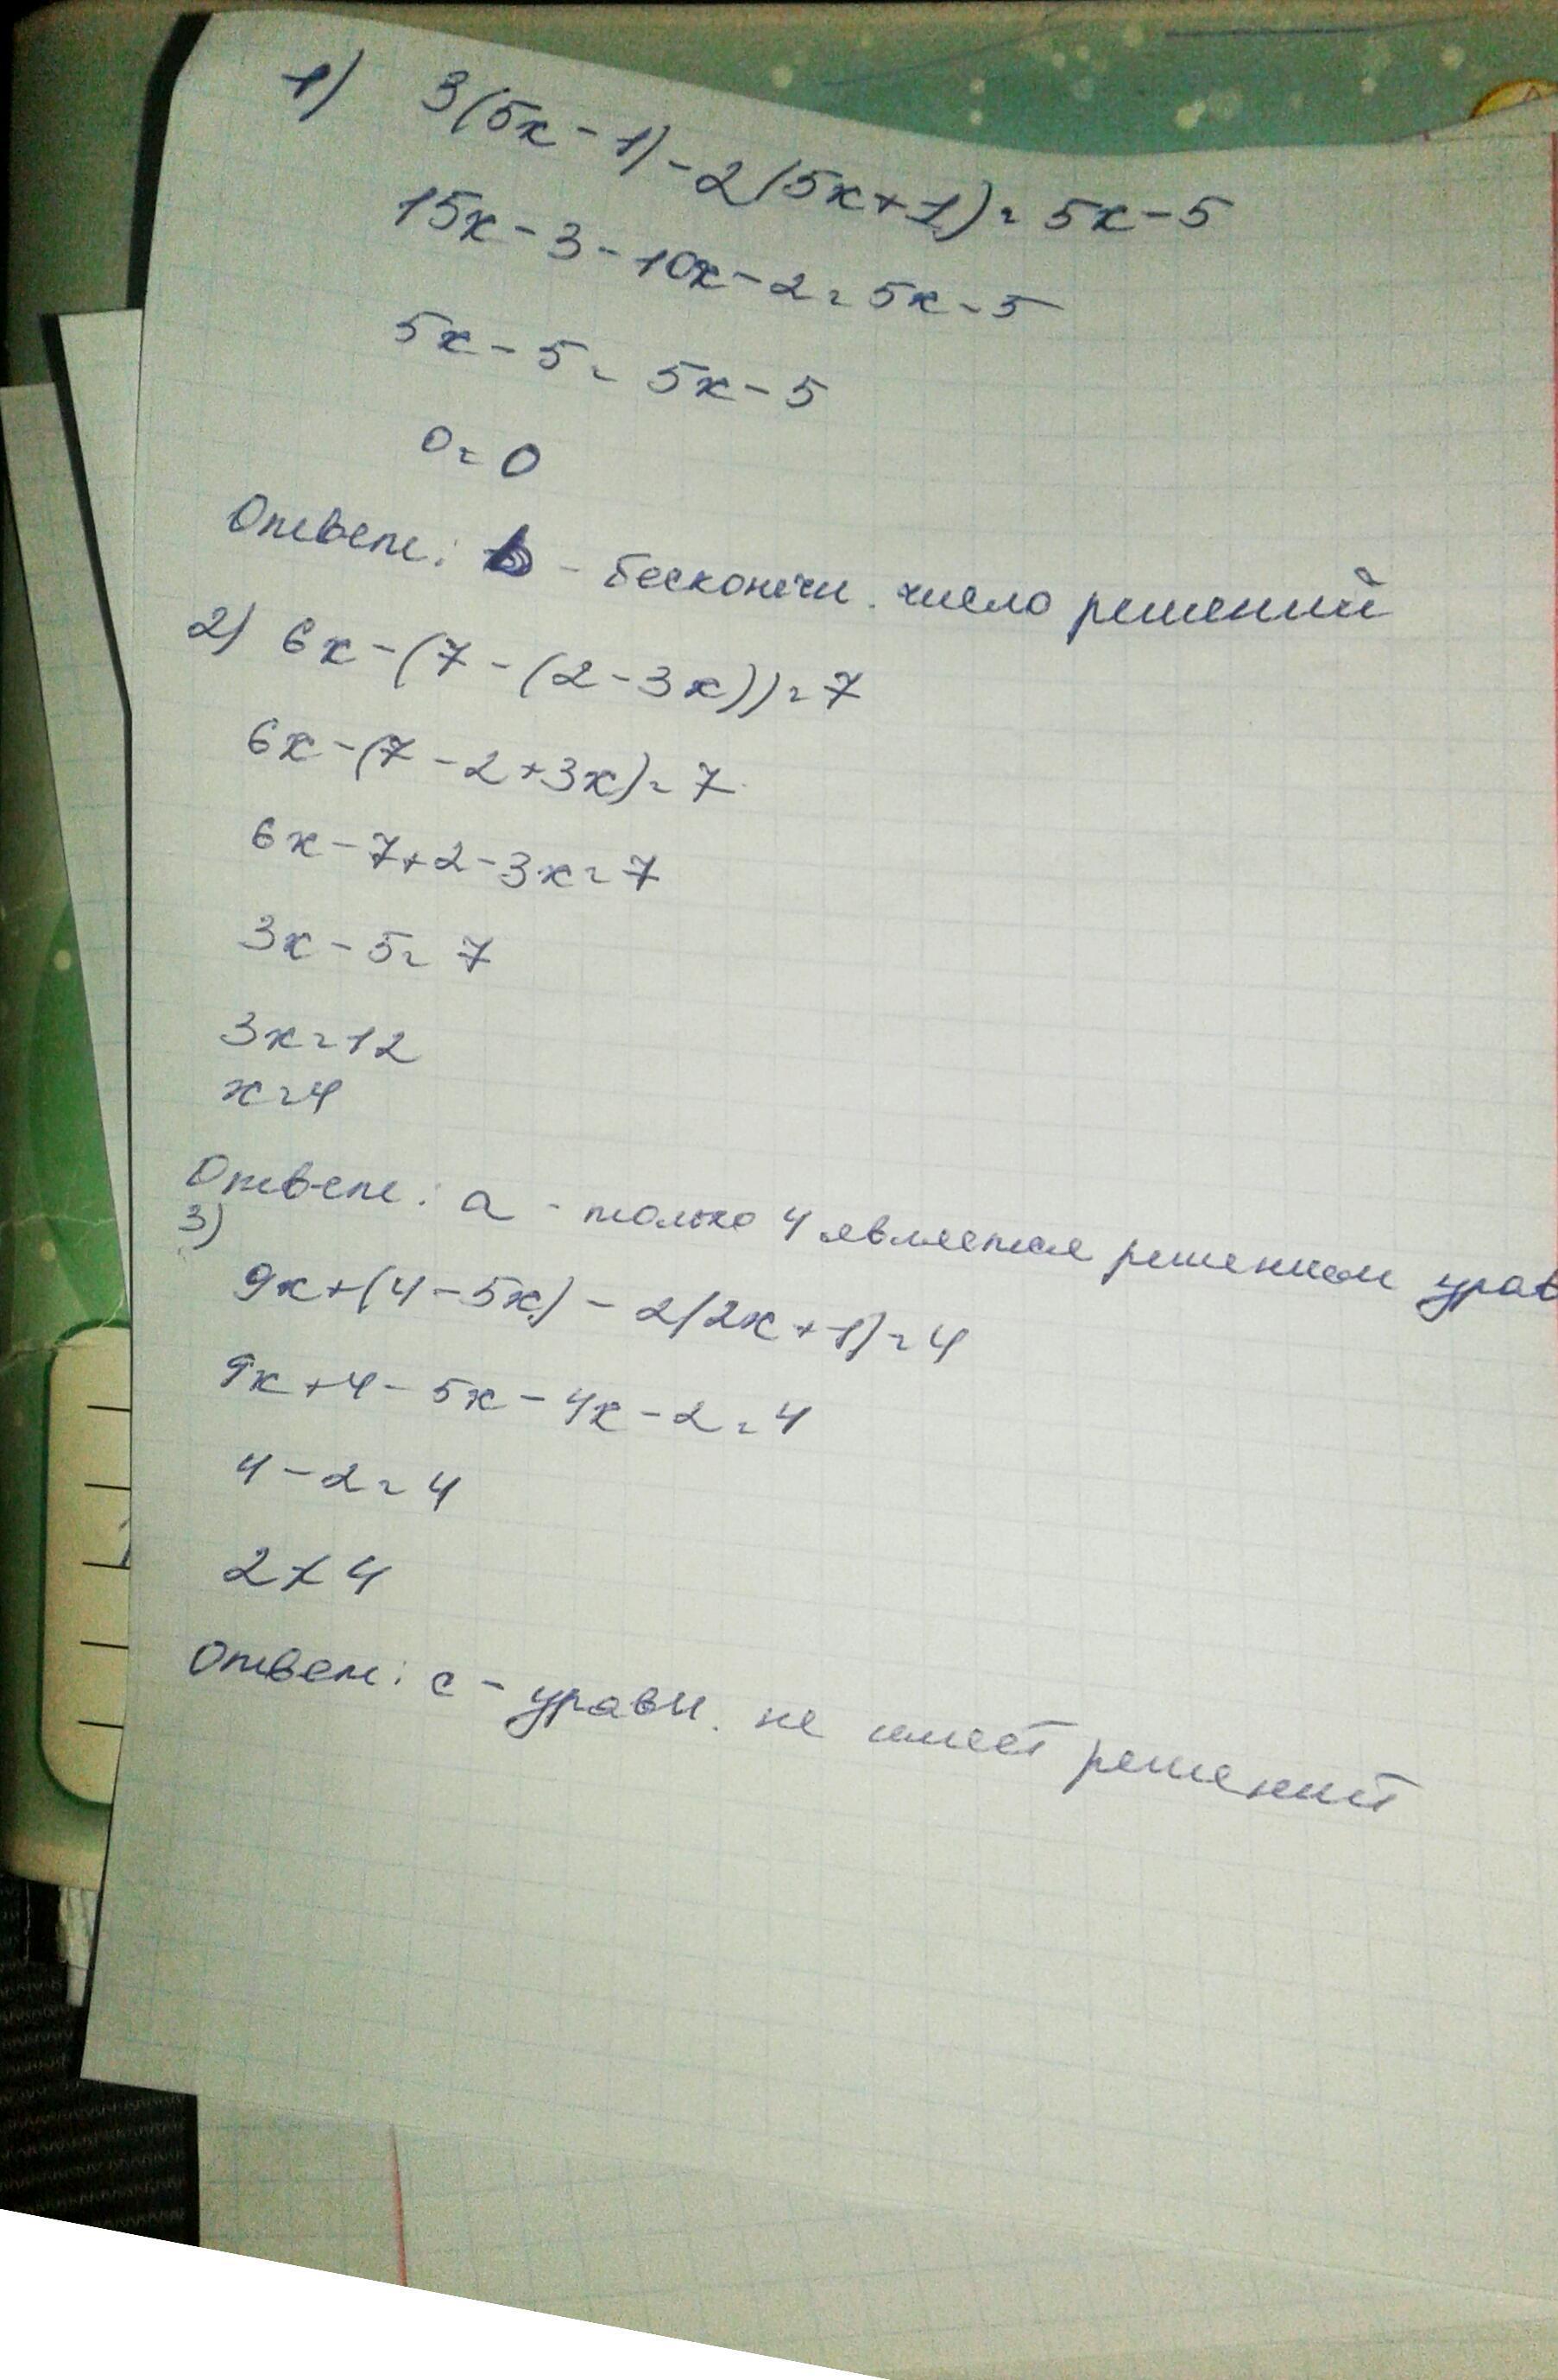 1) 3(5x - 1) - 2(5x + 1) = 5x - 5
15x - 3 - 10x - 2 = 5x - 5
5x - 5 = 5x - 5
0 = 0
Ответ: b - бесконечн. число решений
2) 6x - (7 - (2 - 3x)) = 7
6x - (7 - 2 + 3x) = 7
6x - 7 + 2 - 3x = 7
3x - 5 = 7
3x = 12
x = 4
Ответ: a - только 4 является решением урав
3)
9x + (4 - 5x) - 2(2x + 1) = 4
9x + 4 - 5x - 4x - 2 = 4
4 - 2 = 4
2 ≠ 4
Ответ: c - уравн. не имеет решений